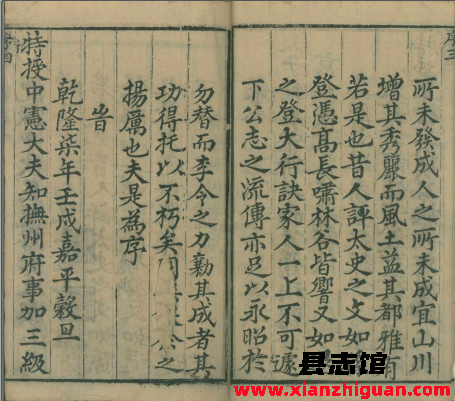 序三
所未發成人之所未成宜山川
增其秀麗而風土益其都雅有
若是也昔人評太史之文如
登憑髙長嘯林谷皆響又如
之登大行訣家人一上不可遽
下公志之流傳亦足以永昭於
勿替而李令之力勷其成者其
功得托以不朽矣公之
揚厲也夫是為序
旹
乾隆柒年壬戌嘉平榖旦
特授中憲大夫知撫州府事加三級
序四
县志馆
www.xianzhiguan.com